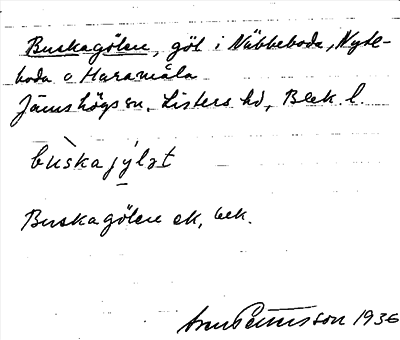 Buskagölen, göl i Näbbeboda, Nyte-
boda o Haramåla
Jämshögs sn, Listers hd, Blek. l.
bùskajy̱lət
Buskagölen ek, bek.
Pettersson 1936